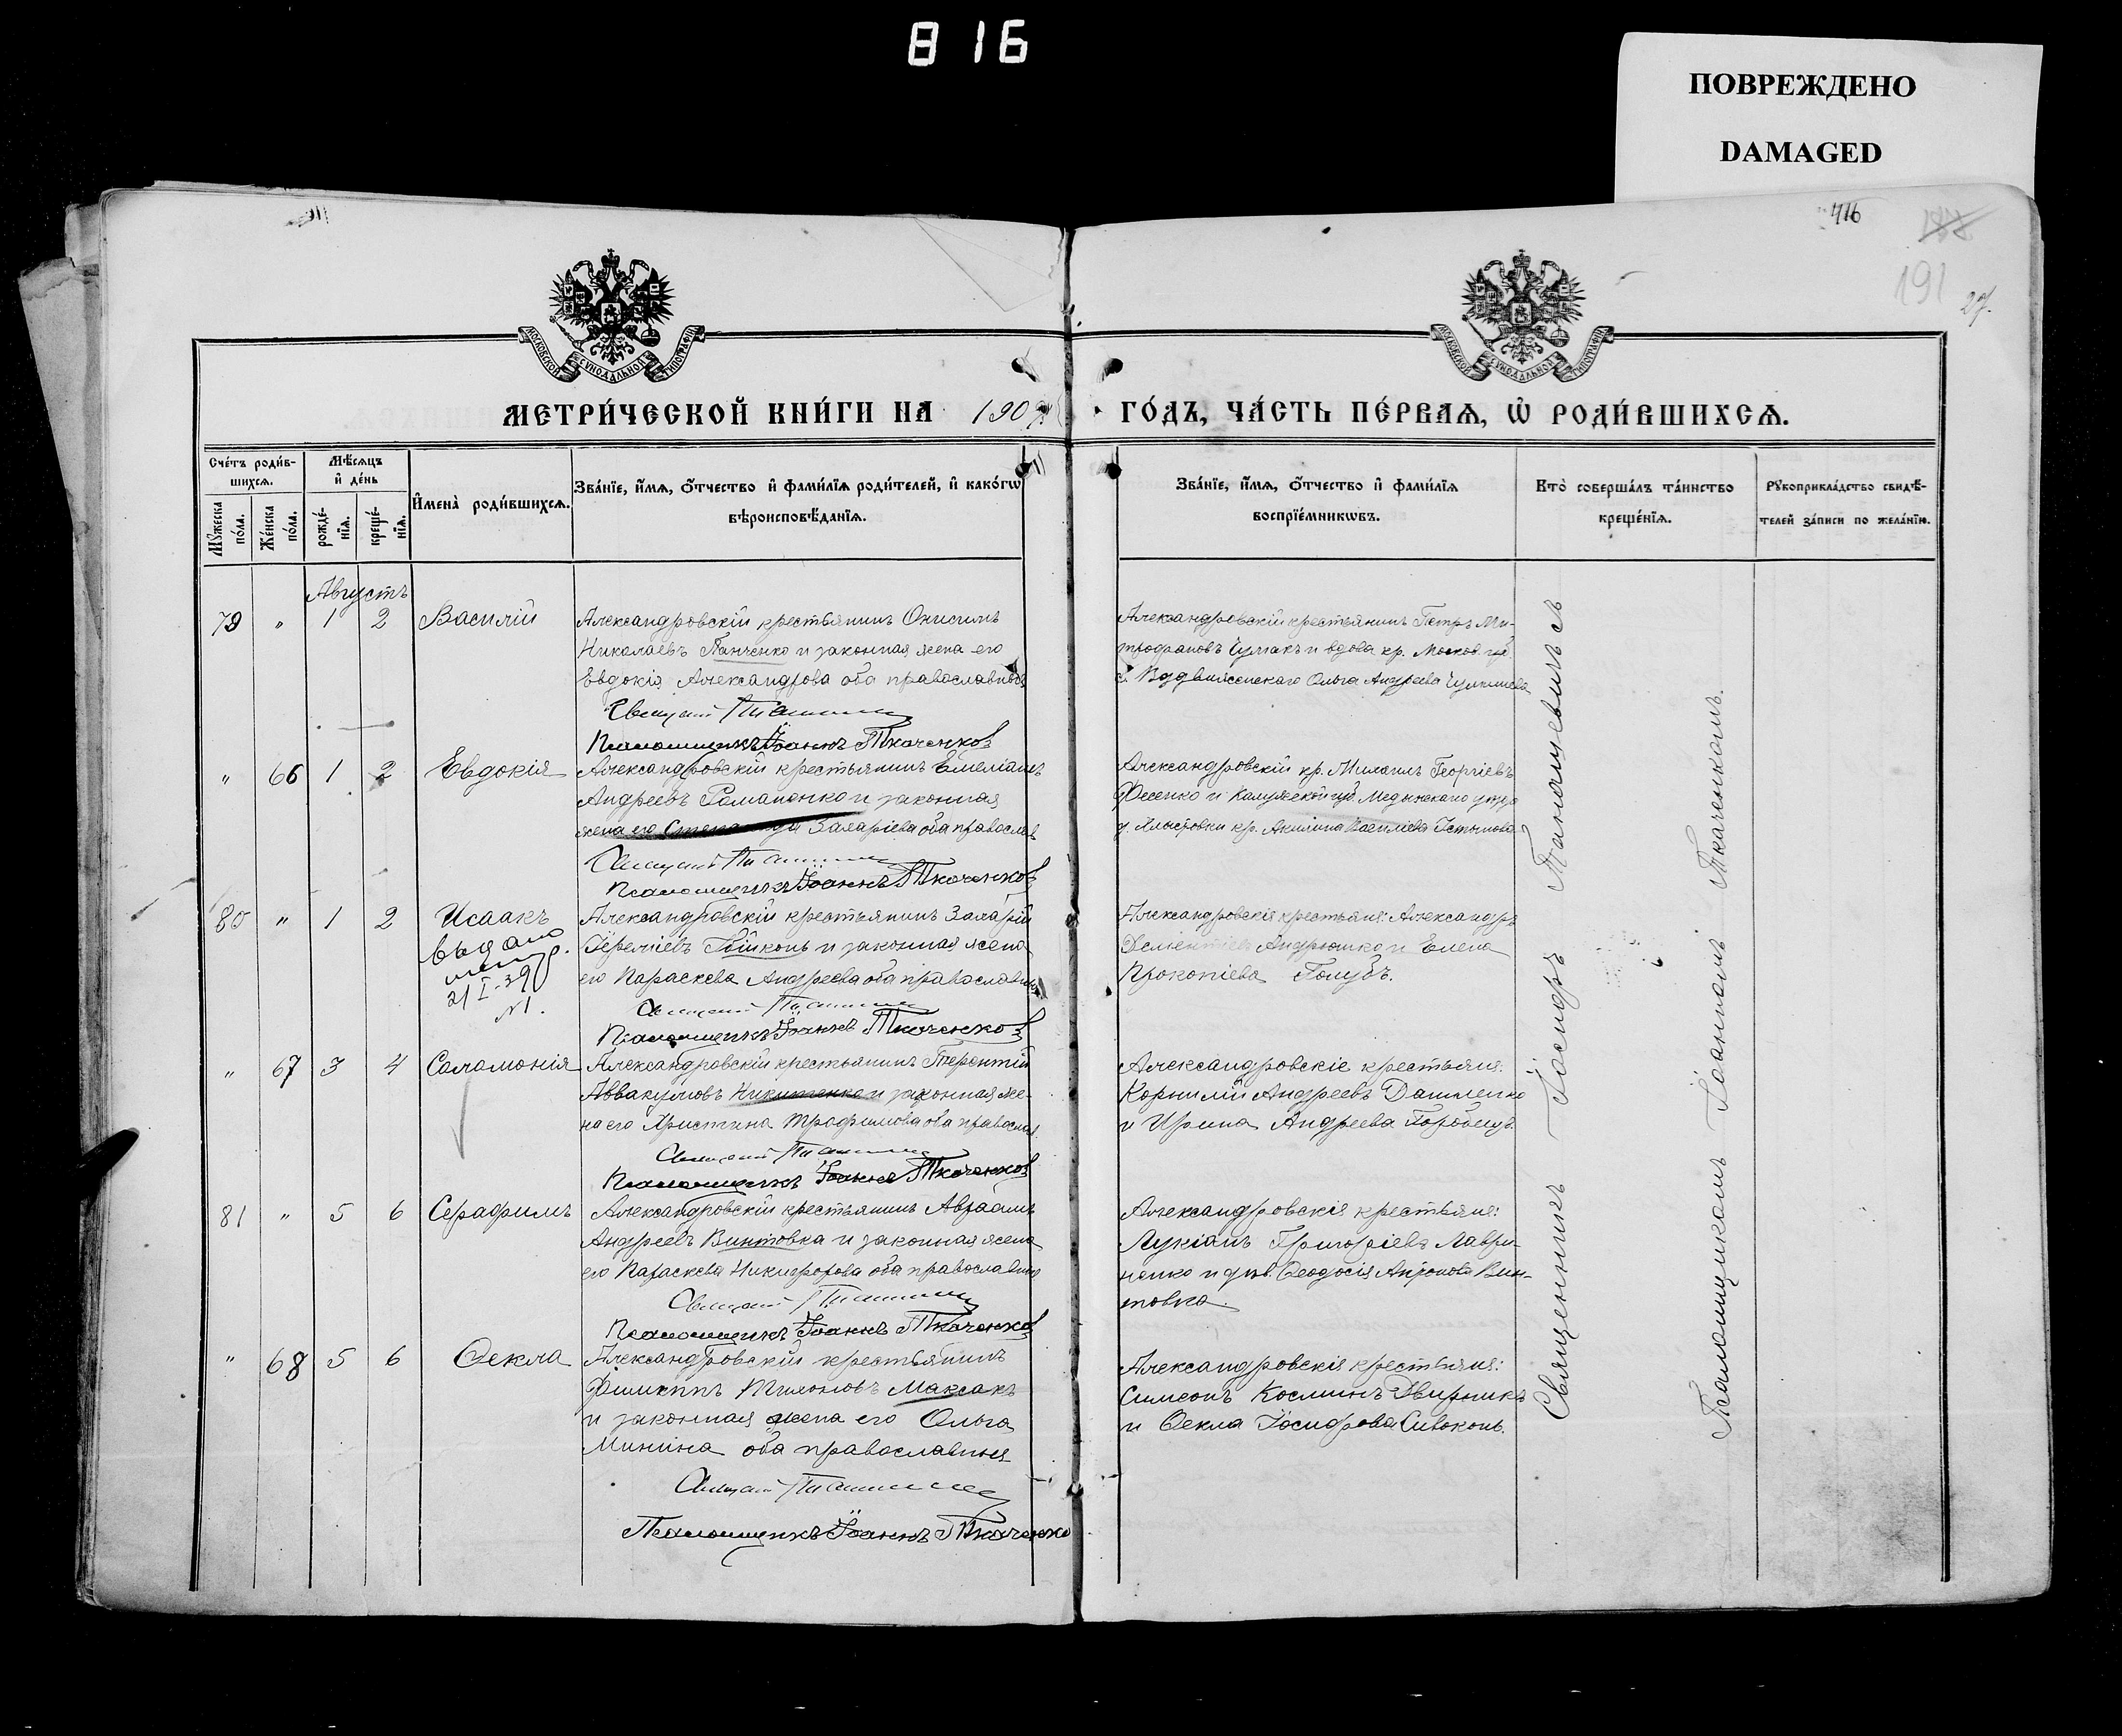 816
ПОВРЕЖДЕНО
DAMAGED
416
191
27.
МОСКОВСКОЙ СУНОДАЛЬНОЙ ТИПОГРАФІИ
МОСКОВСКОЙ СУНОДАЛЬНОЙ ТИПОГРАФІИ
МЕТРИ́ЧЕСКОЙ КНИ́ГИ НА 1907 ГО́ДЪ, ЧА́СТЬ ПЕ́РВАЯ, Ѡ РОДИ́ВШИХСЯ.
Счетъ родив-
шихся.
Мужеска пола.
Женска пола.
Мѣсяцъ и день
рожде-
нія.
креще-
нія.
Имена родившихся.
Званіе, имя, отчество и фамилія родителей, и какогѡ
вѣроисповѣданія.
Званіе, имя, отчество и фамилія
воспріемникωвъ.
Кто совершалъ таинство
крещенія.
Рукоприкладство свидѣ-
телей записи по желанію.
Августъ
79 " 1 2 Василій
Александровскій крестьянинъ Онисимъ
Николаевъ Панченко и законная жена его
Евдокія Александрова оба православные
Псаломщикъ Іоаннъ Ткаченков
Александровскій крестьянинъ Петръ Ми-
трофановъ Чумакъ и вдова кр. Москов. губ.
с. Воздвиженскаго Ольга Андреева
" 66 1 2 Евдокія
Александровскій крестьянинъ Емеліанъ
Андреевъ Романенко и законная
жена его Захаріева оба православ
Псаломщикъ Іоаннъ Ткаченков
Александровскій кр. Михаилъ Георгіевъ
Фесенко и Калужской губ. Медынскаго уѣзда
кр. Акилина Василіева
80 " 1 2 Исаакъ
выдано
метр.
21 I-39
N1.
Александровскій крестьянинъ Захарій
и законная жена
его Параскева Андреева оба православные
Псаломщикъ Іоаннъ Ткаченков
Александровскія крестьяне: Александръ
Дементіевъ Андрюшко и Елена
Прокопіева Голубъ.
" 67 3 4 Саломонія
Александровскій крестьянинъ Терентій
Аввакумовъ Никитенко и законная же-
на его Христина Трофимова оба православ.
Псаломщикъ Іоаннъ Ткаченков
Александровскіе крестьяне:
Корнилій Андреевъ Даниленко
и Ирина Андреева Горобецъ.
81 " 5 6 Серафимъ
Александровскій крестьянинъ Авраамъ
Андреевъ Винтовка и законная жена
его Параскева Никифорова оба православные
Псаломщикъ Іоаннъ Ткаченков
Александровскія крестьяне:
Лукіанъ Григоріевъ Лаври-
ненко и дѣв. Ѳеодосія Вин-
товка.
" 68 5 6 Ѳекла
Александровскій крестьянинъ
Филиппъ Тихоновъ Максакъ
и законная жена его Ольга
Минина оба православныя
Псаломщикъ Іоаннъ Ткаченко
Александровскія крестьяне:
Симеонъ Косминъ Дворникъ
и Ѳекла Іосифова Сивоконь.
Священникъ Іосифъ
Псаломщикомъ Іоанномъ Ткаченкомъ.